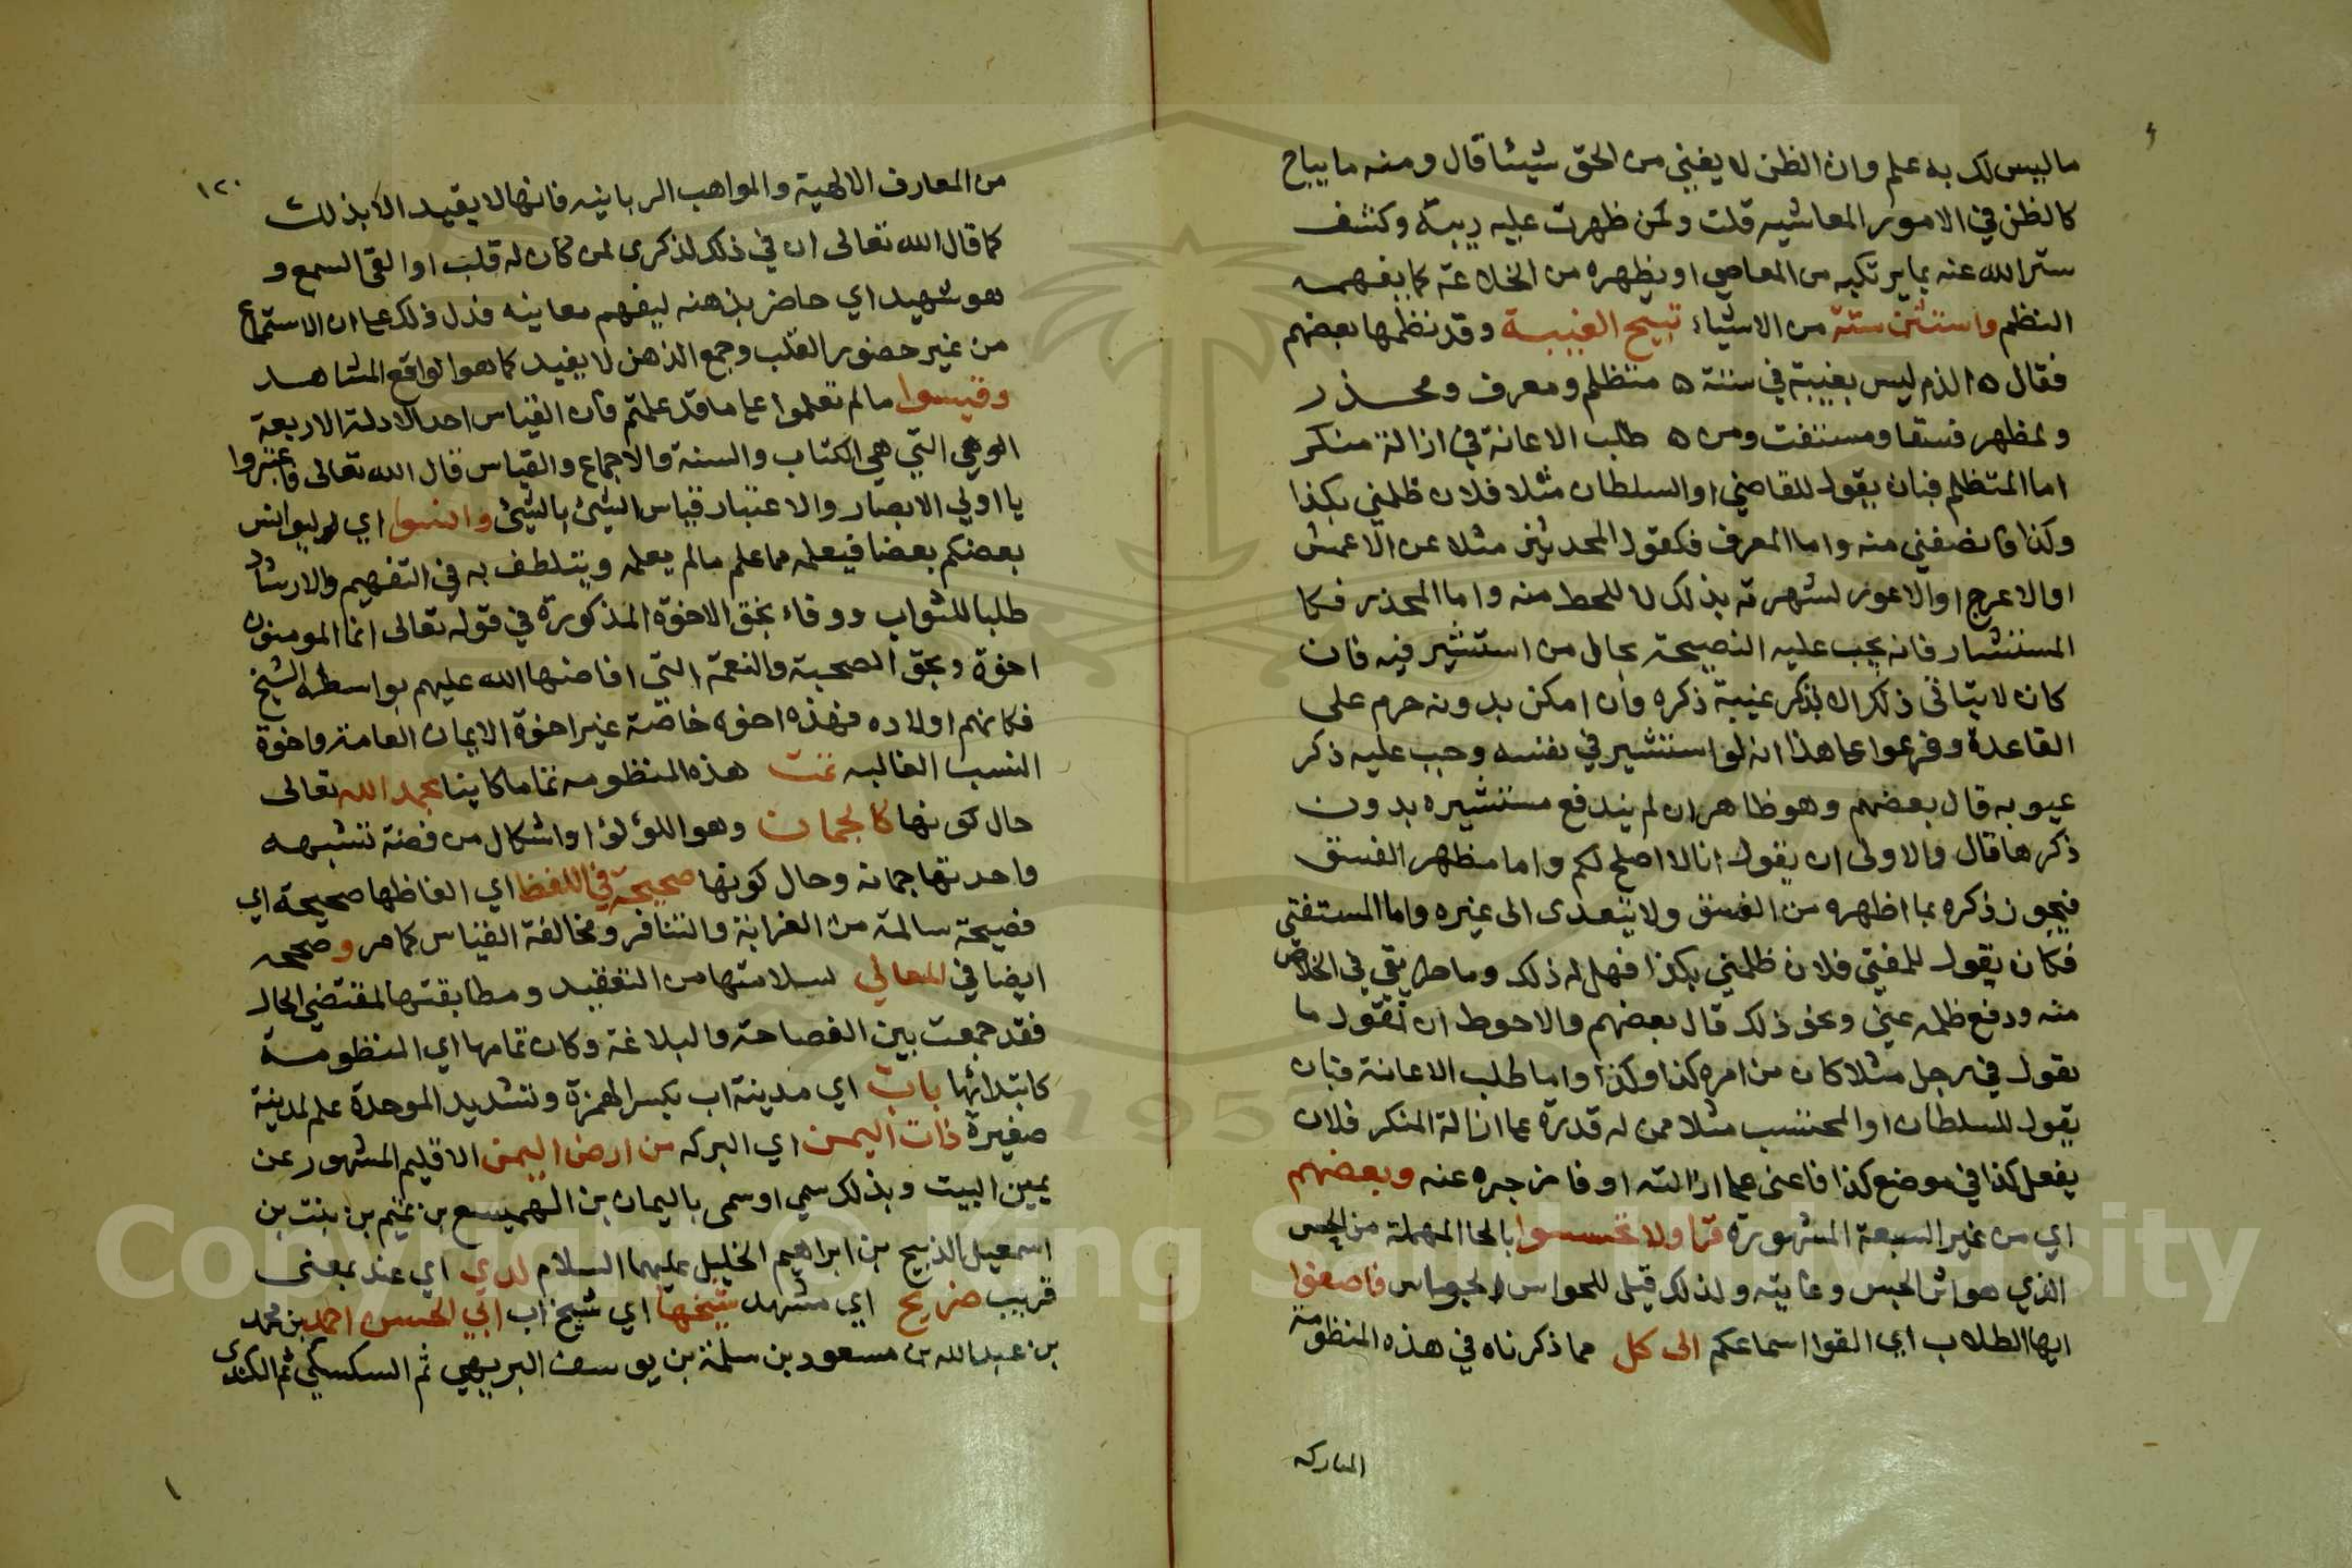 ما ليس لك به علم وان الظن لا يغني من الحق شيئا قال ومنه ما يباح
كالظن في الامور المعاشيه قلت ولمن ظهرت عليه ريبة وكشف
ستر الله عنه بما يرتكبه من المعاصي او يظهره من الخلاعة كما يفهمه
النظم واستثن ستة من الاشياء تبيح الغيبة وقد نظمها بعضهم
فقال ٥ الذم ليس بغيبة في ستة ٥ متظلم ومعرف ومحذر
ولمظهر فسقا ومستفت ومن ٥ طلب الاعانة في ازالة منكر
اما المتظلم فبان يقول للقاضي او السلطان مثلا فلان ظلمني بكذا
وكذا فانصفني منه واما المعرف فكقول المحدثين مثلا عن الاعمش
او الاعرج او الاعور لشهرته بذلك لا للحط منه واما المحذر فكا
المستشار فانه يجب عليه النصيحة بحال من استشير فيه فان
كان لا يتاتى ذلك الا بذكر غيبة ذكره وان امكن بدونه حرم على
القاعدة وفرعوا على هذا انه لو استشير في نفسه وجب عليه ذكر
عيوبه قال بعضهم وهو ظاهر ان لم يندفع مستشيره بدون
ذكرها قال والاولى ان يقول انا لا اصلح لكم واما مظهر الفسق
فيجوز ذكره بما اظهره من الفسق ولا يتعدى الى غيره واما المستفتي
فكان يقول للمفتي فلان ظلمني بكذا فهل له ذلك وما طريقي في الخلاص
منه ودفع ظلمه عني ونحو ذلك قال بعضهم والاحوط ان تقول ما
تقول في رجل مثلا كان من امره كذا وكذا واما طلب الاعانة فبان
يقول للسلطان او المحتسب مثلا ممن له قدرة على ازالة المنكر فلان
يفعل كذا في موضع كذا فاعني على ازالته او فازجره عنه وبعضهم
اي من غير السبعة المشهورة قرا ولا تحسسوا بالحا المهملة من الحس
الذي هو اثر الجس وغايته ولذلك قيل للحواس الجواس فاصغوا
ايها الطلاب اي القوا اسماعكم الى كل مما ذكرناه في هذه المنظومة
المباركه
١٢٠
من المعارف الالهية والمواهب الربانيه فانها لا يقيد الا بذلك
كما قال الله تعالى ان في ذلك لذكرى لمن كان له قلب او القى السمع و
هو شهيد اي حاضر بذهنه ليفهم معانيه فدل ذلك على ان الاستماع
من غير حضور القلب وجمع الذهن لا يفيد كما هو الواقع المشاهد
وقيسوا ما لم تعلموا على ما قد علمتم فان القياس احد الادلة الاربعة
التي هي الكتاب والسنة والاجماع والقياس قال الله تعالى فاعتبروا
يا اولي الابصار والاعتبار قياس الشئ بالشئ وانسوا اي ليوانس
بعضكم بعضا فيعلمه مما علم ما لم يعلمه ويتلطف به في التفهيم والارشاد
طلبا للثواب ووفاء بحق الاخوة المذكورة في قوله تعالى انما المومنون
اخوة وبحق الصحبة والنعمة التي افاضها الله عليهم بواسطة الشيخ
فكانهم اولاده فهذه اخوه خاصة غير اخوة الايمان العامة واخوة
النسب الغالبه تمت هذه المنظومه تماما كاينا بحمد الله تعالى
حال كونها كالجمان وهو اللؤلؤ او اشكال من فضة تشبهه
واحدتها جمانه وحال كونها صحيحة في اللفظ اي الفاظها صحيحة اي
فصيحة سالمة من الغرابة والتنافر ومخالفة القياس كما مر وصحيحه
ايضا في المعالي لسلامتها من التعقيد ومطابقتها لمقتضي الحال
فقد جمعت بين الفصاحة والبلاغة وكان تمامها اي المنظومة
كابتدائها باب اي مدينة اب بكسر الهمزة وتشديد الموحدة علم لمدينة
صغيرة ذات اليمن اي البركه من ارض اليمن الاقليم المشهور عن
يمين البيت وبذلك سمي او سمى باليمان بن الهميسع بن تميم بن بنت بن
اسمعيل الذبيح بن ابراهيم الخليل عليهما السلام لدي اي عند بمعنى
قريب ضريح اي مشهد شيخها اي شيخ اب ابي الحسن احمد بن محمد
بن عبد الله بن مسعود بن سلمة بن يوسف البريهي ثم السكسكي ثم الكندى